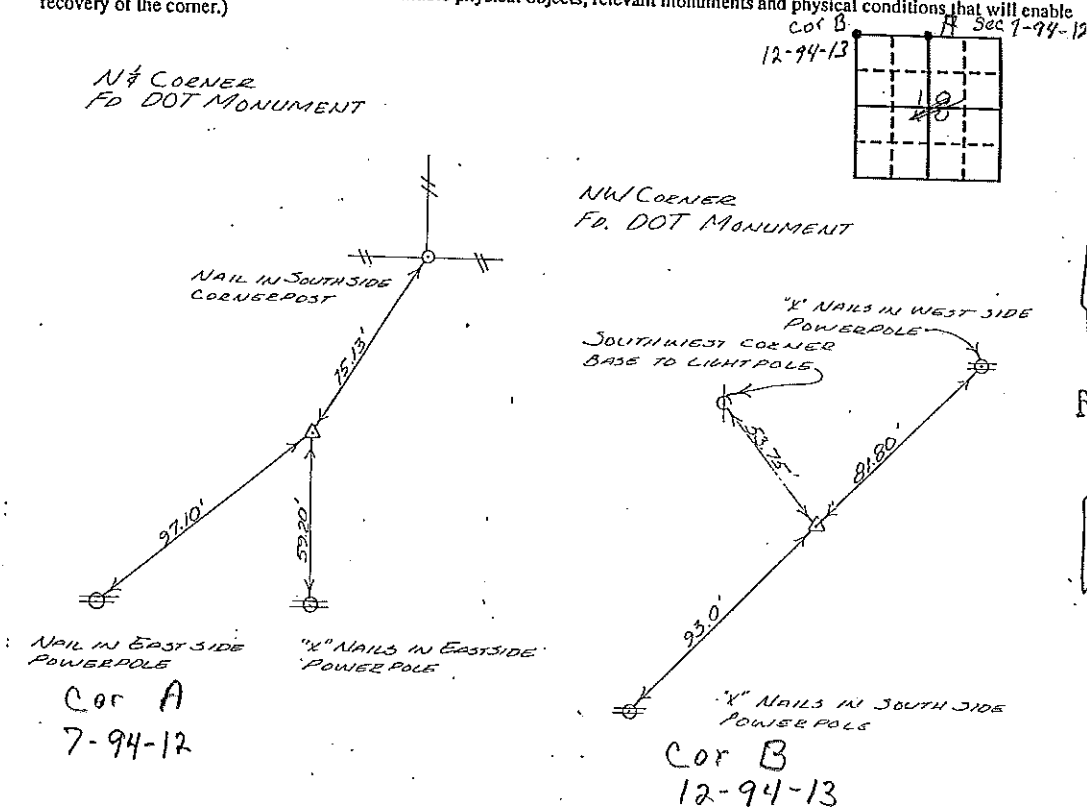 physical objects, relevant monuments and physical conditions that will enable
recovery of the corner.)
Cor B.
12-94-13
A Sec 7-94-12
18
N¼ CORNER
FD DOT MONUMENT
NAIL IN SOUTH SIDE
CORNERPOST
75.13'
97.10'
59.20'
NAIL IN EAST SIDE
POWERPOLE
"X" NAILS IN EASTSIDE
POWERPOLE
Cor A
7-94-12
NW CORNER
FD. DOT MONUMENT
"X" NAILS IN WEST SIDE
POWERPOLE
SOUTHWEST CORNER
BASE TO LIGHTPOLE
53.75'
81.80'
93.0'
"X" NAILS IN SOUTH SIDE
POWERPOLE
Cor B
12-94-13